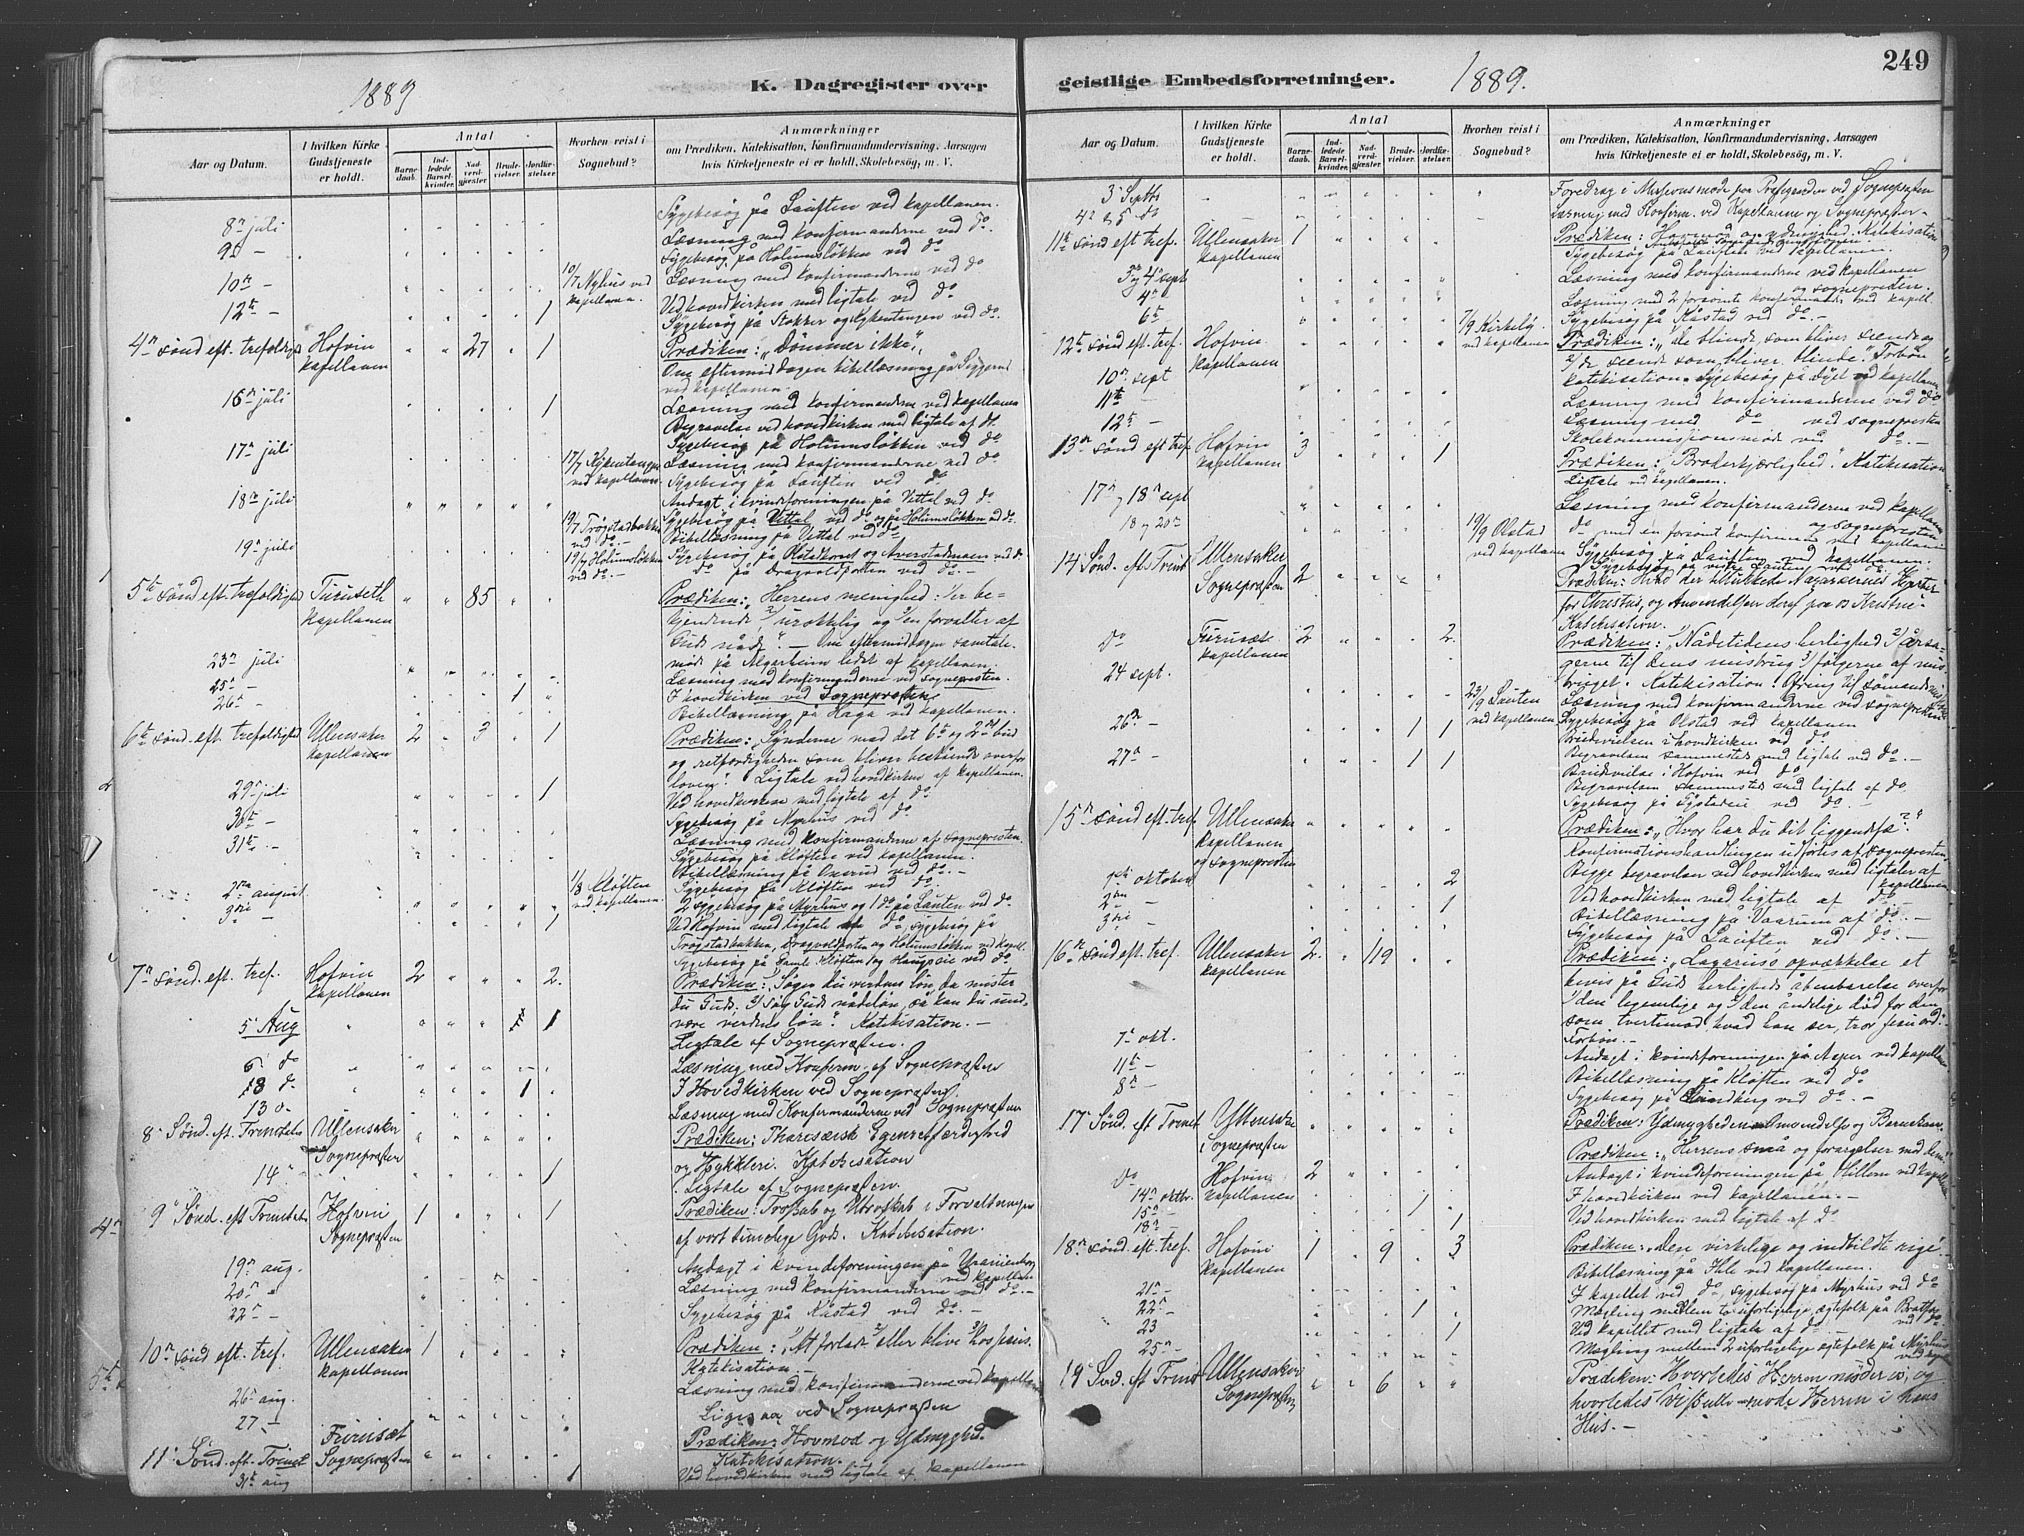 249
1889
K. Dagregister over
geistlige Embedsforretninger.
1889.
Aar og Datum.
I hvilken Kirke Gudstjeneste er holdt.
Antal
Barnedaab.
Indledede Barselkvinder.
Nadverdgjæster.
Brudevielser.
Jordfæstelser.
Hvorhen reist i Sognebud?
Anmærkninger
om Prædiken, Katekisation, Konfirmandundervisning, Aarsagen
hvis Kirketjeneste ei er holdt, Skolebesög, m. V.
8n juli Sygebesøg på Lauften ved kapellanen.
9d - Læsning med konfirmanderne ved do
Sygebesøg på Holumsløkken ved do
10n - 10/7 Myhus ved kapellanen. Læsning med konfirmanderne ved do
12te - 1 Ved hovedkirken med ligtale ved do
Sygebesøg på Stokker og Kykentangen ved do.
4n sønd eft. trefoldigh Hofvin kapellanen 27 1 Prædiken: "Dømmer ikke".
Om eftermiddagen bibellæsning på
ved kapellanen.
16n juli 1 Læsning med konfirmanderne ved kapellanen
Begravelse ved hovedkirken med ligtale af do.
Sygebesøg på Holumsløkken ved do
17n juli 17/7 Kykentangen ved kapellanen. Læsning med konfirmanderne ved do
Sygebesøg på Lauften ved do
18n juli Andagt i kvindeforeningen på Vittel ved do
19/7 Trøgstadbakken ved do Sygebesøg på Vittel ved do og på Holumsløkken ved do.
Bibellæsning på Vettal ved do
19n juli 19/7 Holumsløkken ved do. - Sygebesøg på Olstadkorset og Averstadmoen ved do
do på Dragvoldposten ved do. -
5te sønd eft. trefoldighed Furuseth kapellanen 85 Prædiken: "Herrens menighed: 1/er be-
gjendende 2/urokkelig og 3/en forvalter af
Guds nåde". - Om eftermiddagen samtale-
møde på Algarheim ledet af kapellanen.
23n juli Læsning med konfirmanderne ved sognepresten.
25n - 1 I hovedkirken ved Sognepræsten
26n - Bibellæsning på Haga ved kapellanen.
6te sønd. eft. trefoldighed Ullensaker kapellanen 2 3 1 Prædiken: "Synderne mod det 6te og 2nd bud
og retfærdigheden som bliver bestående overfor
loven". Ligtale ved hovedkirken af kapellanen.
29n juli 1 Ved hovedkirken med ligtale af do
30te - Sygebesøg på Myrhus ved do
31te - Læsning med konfirmanderne af sognepresten.
Sygebesøg på Kløften ved kapellanen.
Bibellæsning på ved do
2den august 1/8 Kløften ved kapellanen. Sygebesøg på Kløften ved do
3die - 1 2 sygebesøg på Myrhus og 1 do på Lauten ved do
Ved Hofvin med ligtale af do, sygebesøg på
Trøgstadbakken, Dragvoldposten og Holumsløkken ved kapell.
Sygebesøg på Gamle Kløften og ved do
7n sønd. eft. tref. Hofvin kapellanen 2 2. Prædiken: 1/Søger du verdens løn, da mister
du Gud; 2/søg Guds nådeløn, så kan du und-
være verdens løn". Katekisation. -
5 Aug 1 Ligtale af Sognepræsten.
6 do Læsning med Konfirm. af Sognepræsten
8 do 1 I Hovedkirken ved Sognepræsten.
13 do Læsning med Konfirmanderne ved Sognepræsten
8 Sønd. eft. Trinitatis Ullensaker Sognepræsten Prædiken: Pharisæisk Egenretfærdighed
og Hykkleri. Katekisation
14 1 Ligtale af Sognepræsten.
9 Sønd. eft Trinitatis Hofvin Sognepræsten 1 1 Prædiken: Troskab og Utroskab i Forvaltningen
af vort timelige Gods. Katekisation.
19n aug. Andagt i kvindeforeningen på Uranienborg ved kapellan
20n Læsning med konfirmanderne ved do. -
22n Sygebesøg på Råstad ved do. -
10n sønd eft. tref. Ullensaker kapellanen 1 Prædiken: 1/At forlade 2/eller blive 3/hos Jesus.
Katekisation. -
26n aug. Læsning med konfirmanderne ved kapellan
27 - ved Sognepræsten
11 Sønd. eft. Trinit Furuset Sognepræsten Prædiken: Hovmod og Ydmyghed.
Katekisation.
31te aug 1 Ved hovedkirken med ligtale af kapellanen
Aar og Datum.
I hvilken Kirke Gudstjeneste er holdt.
Antal
Barnedaab.
Indledede Barselkvinder.
Nadverdgjæster.
Brudevielser.
Jordfæstelser.
Hvorhen reist i Sognebud?
Anmærkninger
om Prædiken, Katekisation, Konfirmandundervisning, Aarsagen
hvis Kirketjeneste ei er holdt, Skolebesög, m. V.
3 Septbr Foredrag i Missionsmøde paa Præstgaarden ved Sognepræsten
4 & 5 do Læsning med Konfirm. ved Kapellanen og Sognepræsten
11te sønd eft tref. Ullensaker kapellanen 1 Prædiken: Hovmod og ydmyghed. Katekisation
Sygebesøg på Lauften ved kapellanen
3n og 4n sept Læsning med konfirmanderne ved kapellanen
4n og sognepresten.
6te Læsning med 2 forsømte konfirmander ved kapell.
7/9 Kirkeby ved kapellanen Sygebesøg på Råstad ved do. -
12te sønd eft. tref. Hofvin kapellanen Prædiken: 1/"de blinde, som bliver seende og
2/de seende som bliver blinde". Forbøn
10n sept katekisation. Sygebesøg på ved kapellanen
11te - Læsning med konfirmanderne ved do
12te - Læsning med do ved sognepresten
Skolekommissionsmøde ved do. -
13n sønd eft tref Hofvin kapellanen 3 1 Prædiken: "Broderkjærlighed". Katekisation
Ligtale ved kapellanen.
17n og 18n sept Læsning med konfirmanderne ved kapellanen og sognepresten
18 og 20n 19/9 Olstad ved kapellanen do med en forsømt konfirmand ved kapellanen
Sygebesøg på Lauften ved kapellanen.
14 Sønd. eft Trinit Ullensaker Sognepræsten 2 Prædiken: Hvad der tilhørte Nazaræernes Hjerter
for Christus, og Anvendelsen deraf paa os Kristne.
Katekisation.
do Furuset kapellanen 2 2. Prædiken: 1/"Nådetidens herlighed 2/årsa-
gerne til dens misbrug 3/følgerne af mis-
bruget. Katekisation. Ofring til sømandsmissionen
24 sept. 23/9 Lauten ved kapellanen Læsning med konfirmanderne ved sognepresten
Sygebesøg på Olstad ved kapellanen
26n - 1 1 Brudevielsen i hovedkirken ved do
Begravelsen sammesteds med ligtale ved do. -
27n - 1 1 Brudevielse i Hofvin ved do
Begravelsen sammesteds med ligtale af do
Sygebesøg på ved do. -
15n sønd eft. tref Ullensaker kapellanen og sognepresten Prædiken: "Hvor har du dit liggendefæ?"
Konfirmationshandlingen udførtes af sognepresten
1ste oktober 2 Begge begravelser ved hovedkirken med ligtaler af kapellanen
2den - 1 Ved hovedkirken med ligtale af do
3die - Bibellæsning på Vaarum af do. -
Sygebesøg på Lauften ved do. -
16n sønd eft. tref. Ullensaker kapellanen 2. 119 Prædiken: "Lazarus's opvækkelse et
bevis på Guds herligheds åbenbarelse overfor
1/den legemlige og 2/den åndelige død for den,
som, tvertimod hvad han ser, tror Jesu ord".
Forbøn.
7n okt. Andagt i kvindeforeningen på Asper ved kapellanen
11te - Bibellæsning på Kløften ved do
8n - Sygebesøg på Sandberg ved do. -
17 Sønd. eft Trinit Ullensaker Sognepræsten Prædiken: Ydmyghedens Anvendelse og Beruskan
do Hofvin kapellanen 2 Prædiken: "Herrens små og forargelser mod dem."
Andagt i kvindeforeningen på Hillern ved kapellanen
14n oktbr. 1 I hovedkirken ved kapellanen. -
15n 1
18n 1 Ved hovedkirken med ligtale af do
18n sønd. eft. tref. Hofvin kapellanen 1 9 3 Prædiken: "Den virkelige og indbildte rige".
Bibellæsning på Ihle ved kapellanen.
21n - I kapellet ved do, sygebesøg på Myrhus ved do
22n - 1 Mægling mellem to uforligelige ægtefolk på ved do
23 1 Ved kapellet med ligtale af do
25n - Mægling mellem 2 uforligelige ægtefolk på Myrhus ved kapell
19 Sød. eft Trinit Ullensaker Sognepræsten 6 Prædiken: Hvorledes Herren møder os, og
hvorledes vi skulle møde Herren i hans
Hus. -